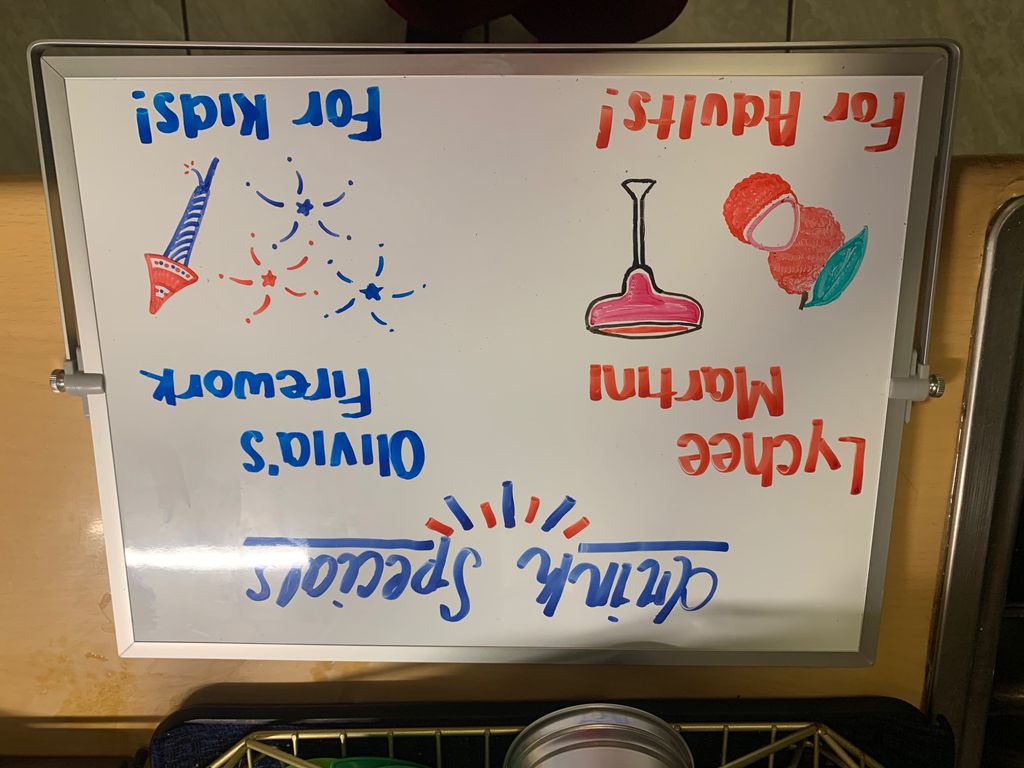 Drink Specials
Lychee
Martini
For Adults!
Olivia's
Firework
For Kids!